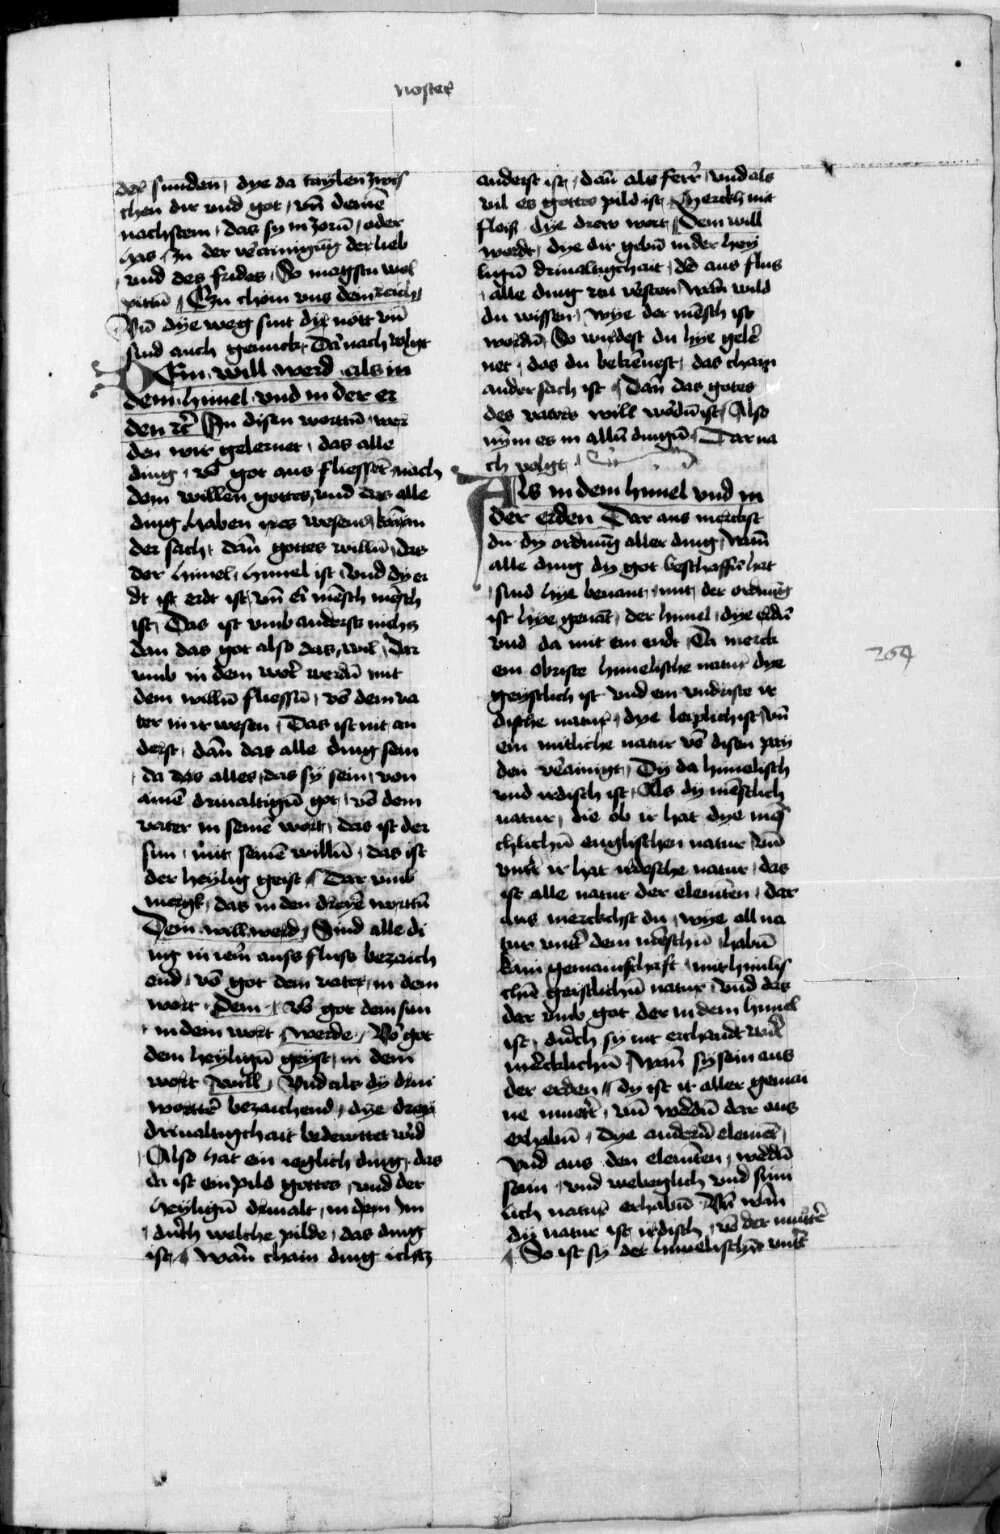 noster
der sunden, dye da taylen zwis
chen dir vnd got, vn̄ deinē
nachstem, das sy in zorn̄, oder
has, zu der veraynigūg der lieb
vnd des frides, So magstu wol
pittn̄, Czu chom vns dein reich,
Vn̄ dye weg sint dye nott vn̄
sind auch genuck, Da nach volgt
Dein will werd als in
dem himel vnd in der er
den ꝛc̄ In disen wortn̄ wer
den wir gelernet, das alle
ding, vō got aus fliessēt nach
dem willen gottes, vnd das alle
ding haben ires wesens, kain an
der sach, dan̄ gottes willn̄, das
der himel, himel ist, vnd dy er
dt ist erdt ist, vn̄ ei mēsch mēsch
ist, Das ist vmb anderst nichtz
dan das got also das wil, Dar
vmb in dem wor̄t werdn̄ mit
dem willn̄ fliessn̄, vō dem va
ter in ir wesen, Das ist nit an
derst, dan̄ das alle ding sein
da das alles, das sy sein, von
ainē driualtign̄ got, vō dem
vater in seinē wort, das ist der
sun, mit seinē willn̄, das ist
der heylig geist, Dar vmb
mergk, das in den dreyē wortn̄
Dein will werd, Sind alle di
ng in irem auss fluss bezaich
end, vō got dem vater, in dem
wort, Dein, vō got dem sun
in dem wort werde, Vō got
dem heylign̄ geyst, in dem
wort will, Vnd als dy drui
wortē bezaichend, dye drey
driualtigchait bedewttet wīd
Also hat ein ieglich ding, das
da ist ein pild gottes, vnd der
heylign̄ driualt, in dem im
durch welche pilde, das ding
ist, wan̄ chain ding ichtz
anderst ist, dan̄ als ferr̄, vnd als
vil es gottes pild ist, Merckh mit
fleiß dye drew wort, Dein will
werdt, dye dir gebn̄ in der hey
lign̄ driualtigchait, dē aus flus
alle ding zu vesten, Wan̄ wild
du wissen, wye der mēsch ist
wordn̄, So wurdest du hye geler̄
net, das du bekēnest, das chain
ander sach ist, dan̄ das gotes
des vaters will wordn̄ ist, Also
nym es in alln̄ dingn̄, Dar na
ch volgt
Als in dem himel vnd in
der erden Dar aus merckst
du dy ordnūg aller ding, wan̄
alle ding dy got beschaffn̄ hat
sind hye benant, mit der ordnūg
ist hye genāt, der himel, dye erdn̄
vnd da mit ein endt, Da merck
ein obriste himelische natur dye
geystlich ist vnd ein vndriste ir
dische natur, dye leiplich ist, vn̄
ein mitliche natur vō disen pay
den vērainigt, Dy da himelisch
vnd irdisch ist, Als dy mēschlich
natur, die ob ir hat dye mēs
chlichn̄ englischen natur, vn̄
vntr̄ ir hat irdesche natur, das
ist alle natur der elemēten, dar
aus merckchst du, wye all na
tur vntr̄ dem mēschn̄ habn̄
kain gemainschaft, mit himlis
chē geistlichn̄ natur, vnd das
dar vmb got der in dem himel
ist, durch sy nit erchandt wirt
mēcklichn̄, Wan̄ sy sein aus
der erden, dy ist ir aller gemai
ne mutē, vn̄ werdn̄ dar aus
erhabn̄, Dye andern̄ elemēt,
vnd aus den elemēten, werdn̄
sein, vnd weleglich vnd sini
lich natur erhabn̄, Vn̄ wan̄
dy natur ist irdisch, vō der mutē
So ist sy der himelischn̄ vntr̄
264